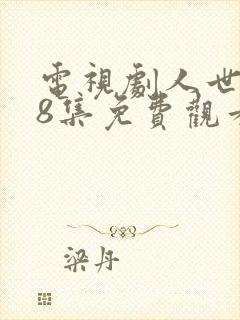 電視劇人世
8集免費觀
梁丹